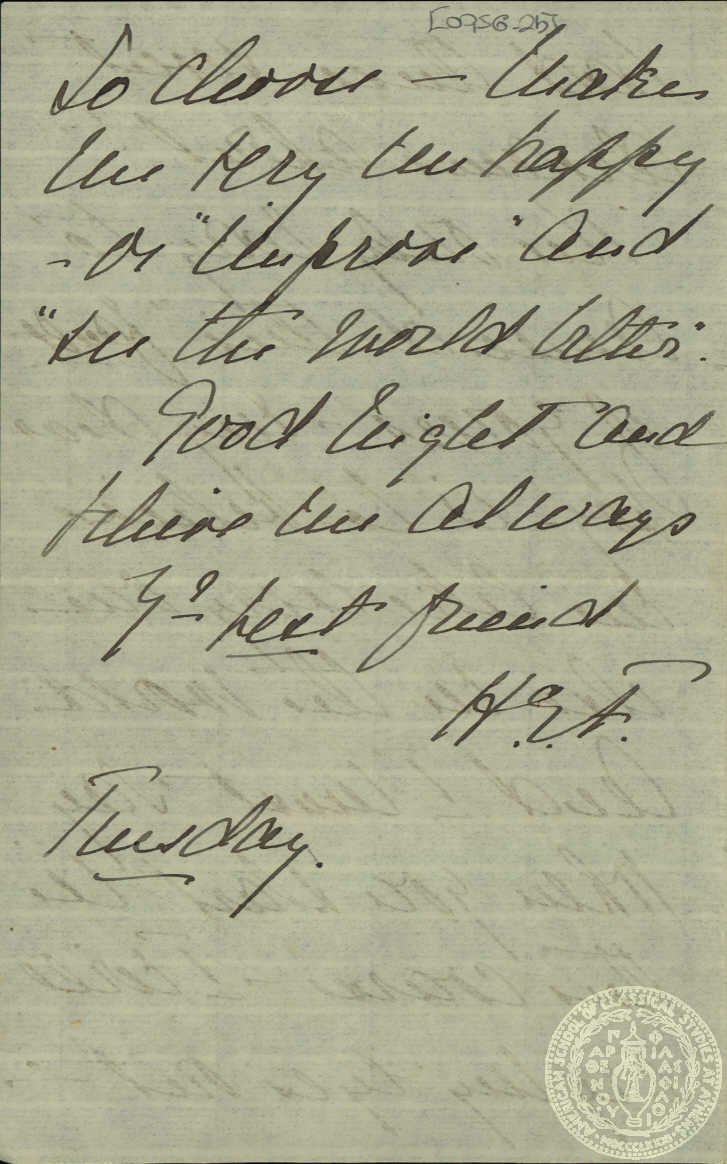 [0956-25]
to choose — makes
me very unhappy
- or "improve" and
"see the world better".
Good night and
believe me always
Yr best friend
H.E.F.
Tuesday.
AMERICAN SCHOOL OF CLASSICAL STUDIES AT ATHENS
ΠΑΡΘΕΝΟΥ ΦΙΛΑΣ ΦΙΛΟ
MDCCCLXXXI